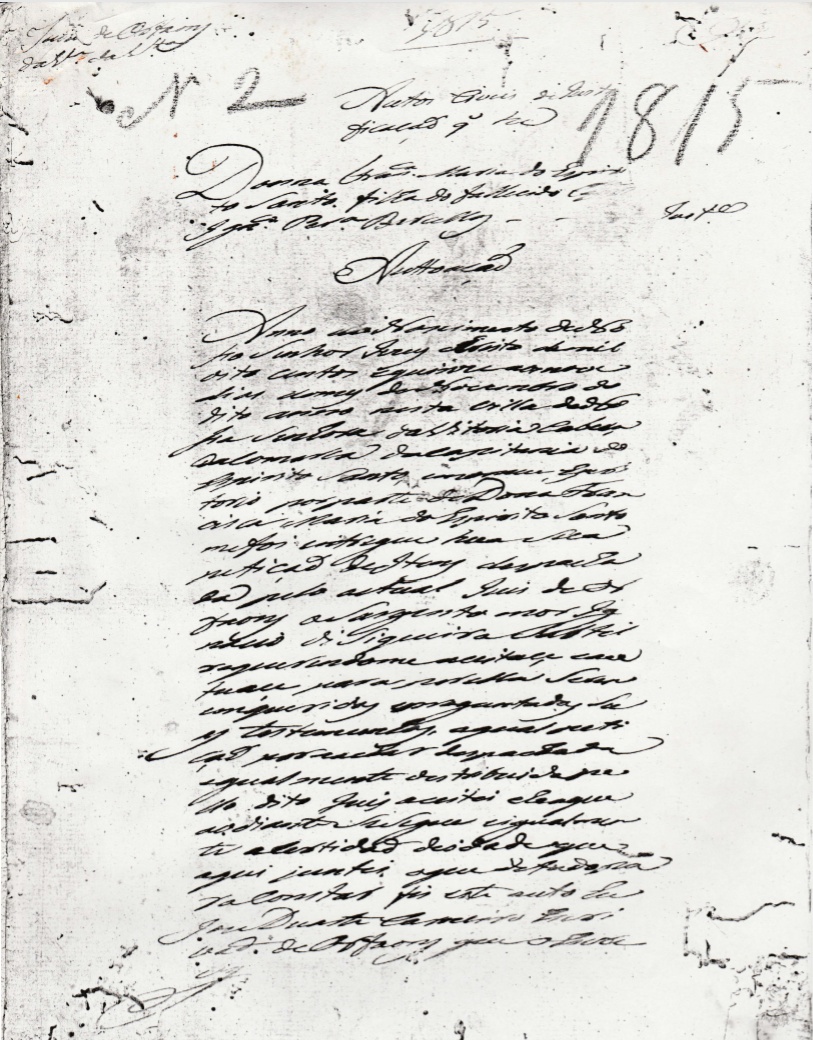 Juizo de Orfaons
da Va. da Va.
1815
N 2
1815
Autos Civeis de Just
ficaçaõ q̃ fez
Donna Franca. Maria do Espiri
to Santo filha do fallecido
Perª
Juste
Auttoaçaõ
Anno do Nascimento de No
ço Senhor Jezus Christo de mil
oito centos e quinze aos nove
dias do mez de Novembro do
dito anno nesta Villa de No
ça Senhora da Victoria Cabeça
da Comarca da Capitania do
Espirito Santo em meu Escri
torio por parte de Dona Fran
cisca Maria do Espirito Santo
me foi entregue huma sua
petiçaõ de Jtens despacha
da pelo actual Juis de Or
faons o Sargento mor Ig
nacio de Siqueira
requerendome aceitaçe e au
tuaçe para por ella Serem
enqueridas e preguntadas su
as testemunhas, a qual peti
çaõ por estar despachada
e igual mente destribuida pe
llo dito Juis aceitei e he a que
ao diante Segue e igualmen
te a Certidaõ de idade que
aqui juntei, e que de tudo pa
ra Constar fis este auto Eu
Joze Duarte Carneiro Escri
vaõ de Orfaons que o Escre
vy